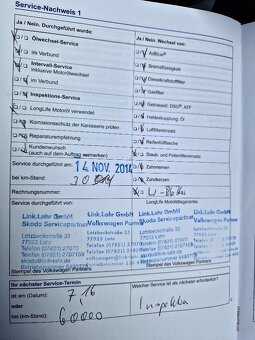 Service-Nachweis 1
Ja / Nein. Durchgeführt wurde:
Ölwechsel-Service
im Verbund
Intervall-Service
inklusive Motorölwechsel
im Verbund
Inspektions-Service
LongLife Motoröl verwendet
Korrosionskontrolle der Karosserie prüfen
Reparaturempfehlung
Kundenwunsch
(auch auf dem Auftrag vermerken)
Service durchgeführt am: 14. NOV. 2014
bei km-Stand:
Rechnungsnummer:
Service durchgeführt von:
Ja / Nein. Wechsel von:
AdBlue
Bremsflüssigkeit
Dieselkraftstofffilter
Gasfilter
Getriebeöl DSG® ATF
Haldexkupplung Öl
Luftfiltereinsatz
Reifenfüllflasche
Staub- und Pollenfiltereinsatz
Zahnriemen
Zündkerzen
LongLife Mobilitätsgarantie.
Link.Lahr GmbH
Skoda Servicepartner
Lotzbeckstraße 33
77933 Lahr
Telefon (07821) 27070
Telefax (07821) 270759
skoda@link-lahr.de
Stempel des Volkswagen Partners
Link.Lahr GmbH
Volkswagen Partner
Lotzbeckstraße 33
77933 Lahr
Stempel des Volkswagen Partners
Ihr nächster Service-Termin
ist am (Datum): 7 16
oder
bei (km-Stand): 60000
Welcher Service ist als nächster erforderlich?
Inspektion